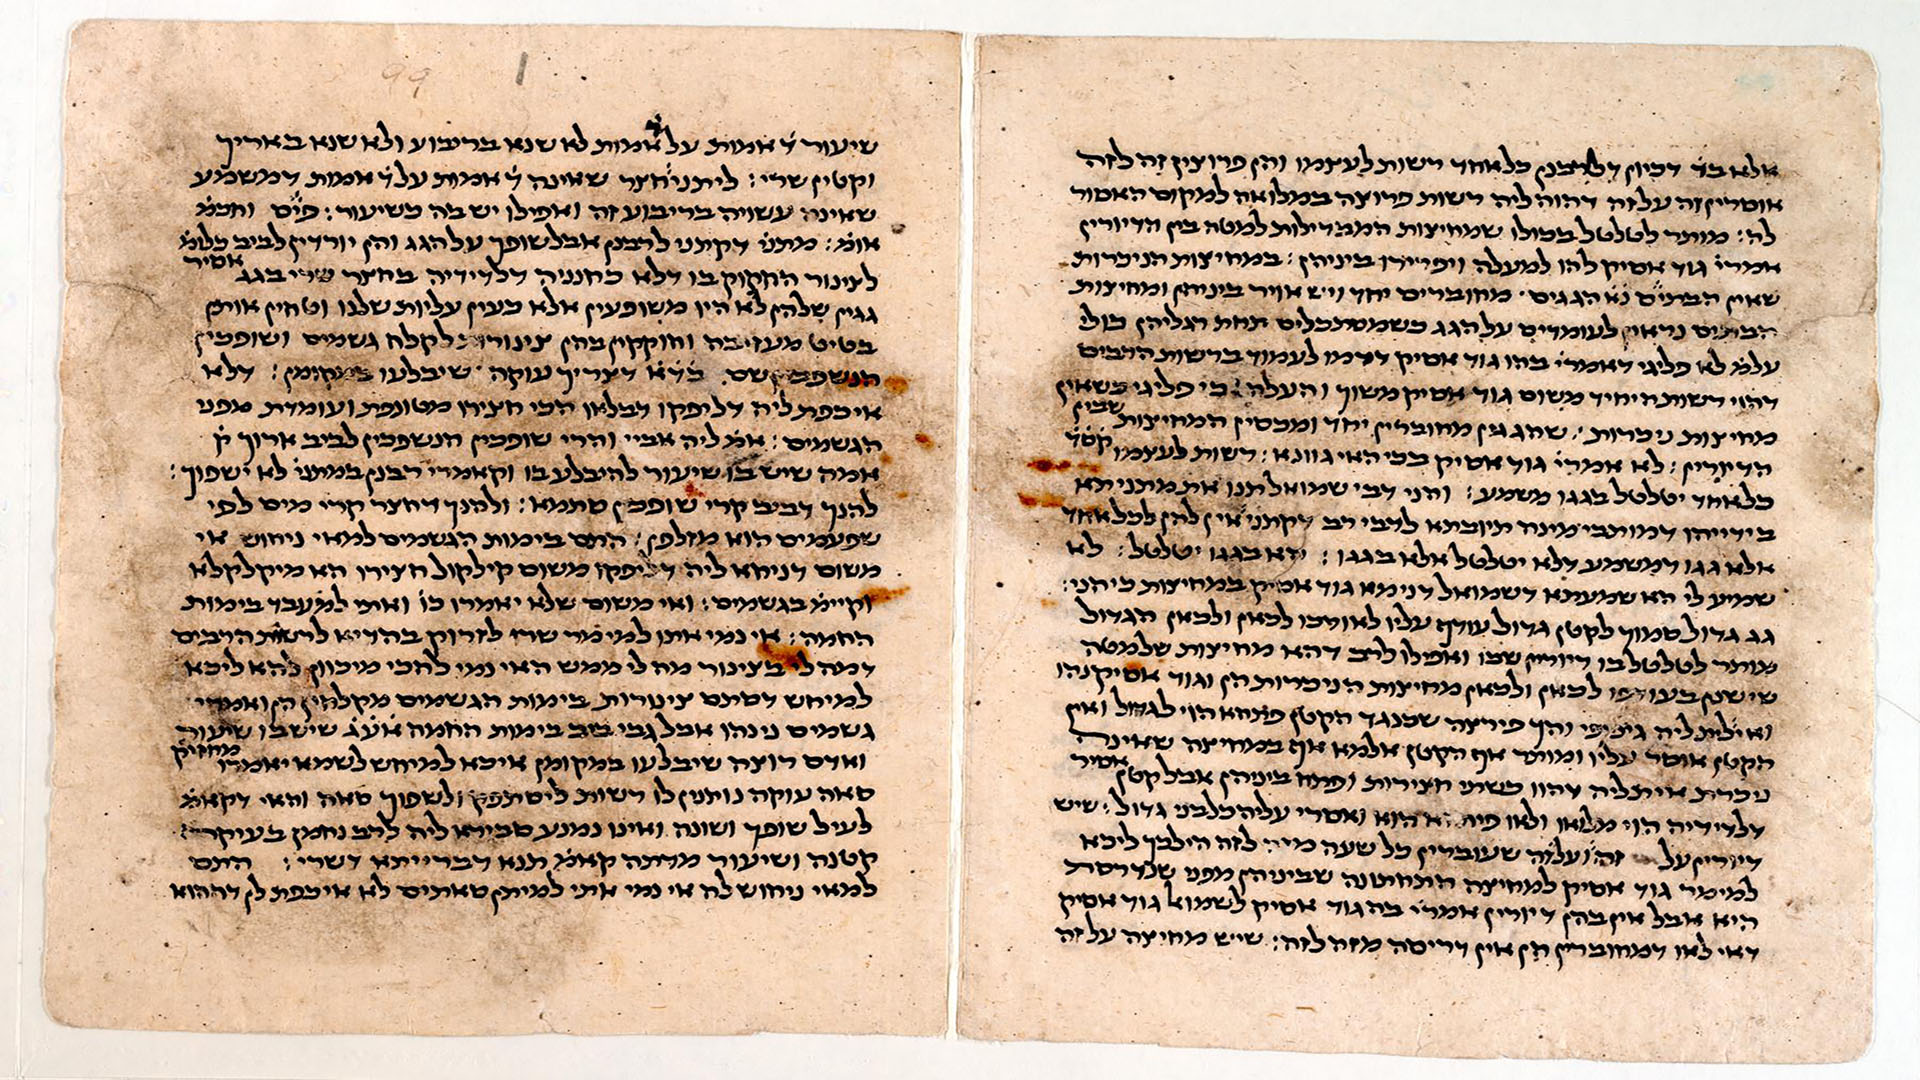 אלא בד׳ דכיון דלרבנן כל אחד רשות לעצמו והן פרוצין זה לזה
אוסרין זה על זה דהוה ליה רשות פרוצה במלואה למקום האסור
לה: מותר לטלטל בכולו שמחיצות המבדילות למטה בין הדיורין
אמרי׳ גוד אסיק להו למעלה ויפרידו ביניהן: במחיצות הניכרות
שאין הבתים מחוברים יחד ויש אויר ביניהן ומחיצות
הבתים נראין לעומדים על הגג כשמסתכלים תחת רגליהן כולי
עלמ׳ לא פליגי דאמרי׳ בהו גוד אסיק לעמוד ברשות הרבים
דהוי רשות היחיד משום גוד אסיק משוך והעלה: כי פליגי כשאין
מחיצות ניכרות: שהגגין מחוברין יחד ומכסין המחיצות שבין
הדיורין: לא אמרי׳ גוד אסיק בכי האי גוונא: רשות לעצמו
כל אחד יטלטל בגגו משמע: והני דבי שמואל תנו את מתניתא
בידייהו דמותבי מינה תיובתא לדבי רב דקתני אין להן לכל אחד
אלא גגו דמשמע דלא יטלטל אלא בגגו: יטלטל: לא
שמיע לי הא שמעתא דשמואל דנימא גוד אסיק במחיצות כי הני:
גג גדול סמוך לקטן גדול עודף עליו לאורכו לכאן ולכאן הגדול
מותר לטלטל בו דיורין שבו ואפילו לרב דהא מחיצות שלמטה
שישנן בעודפו לכאן ולכאן מחיצות הניכרות הן וגוד אסיקנהו
ואילת ליה גיפופי והך פירצה שכנגד הקטן פתחא הוי לגדול ואין
הקטן אוסר עליו ומותר אף הקטן אלמא אף במחיצה שאינה
ניכרת אית ליה דהוו כשתי חצירות ופתח ביניהן אבל קטן אסיר
דלדידיה הוי מלואו ולאו פיתחא הוא ואסרי עליה כל בני גדול: שיש
דיורין על זה ועל זה שעוברין כל שעה מזה לזה הילכך ליכא
למימר גוד אסיק למחיצה התחתונה שביניהן מפני שנדרסת
היא אבל אין בהן דיורין אמרי׳ בה גוד אסיק לשמואל גוד אסיק
דאי לאו דמחוברין הן אין דריסה מזה לזה: שיש מחיצה על זה
שיעור ד׳ אמות על ד׳ אמות לא שנא בריבוע ולא שנא באריך
וקטין שרי: ליתני חצר שאינה ד׳ אמות על ד׳ אמות דמשמע
שאינה עשויה בריבוע זה ואפילו יש בה כשיעור: פיס׳ וחכמ׳
אומ׳: מתני׳ דקתני לרבנן אבל שופך על הגג והן יורדין לביב כלומ׳
לצינור החקוק בו דלא כחנניה דלדידיה בחצר שרי בגג אסיר
גגין שלהן לא היו משופעין אלא כעין עליות שלנו וטחין אותן
בטיט מעזיבה וחוקקין בהן צינורו לקלח גשמים ושופכין
הנשפכין שם דצריך עוקה שיבלעו במקומן: דלא
איכפת ליה דליפקו דבלאו הכי חצירו מטונפת ועומדת מפני
הגשמים: אמ׳ ליה אביי והרי שופכין הנשפכין לביב ארוך ק׳
אמה שיש בו שיעור להיבלע בו וקאמרי רבנן במתני׳ לא ישפוך:
להנך דביב קרי שופכין סתמא: ולהנך דחצר קרי מים לפי
שפעמים הוא מזלפן: התם בימות הגשמים למאי ניחוש אי
משום דניחא ליה דליפקו משום קילקול חצירו הא מיקלקלא
וקיימ׳ בגשמים: ואי משום שלא יאמרו כו׳ ואתי למעבד בימות
החמה: אי נמי אתו למימר שרי לזרוק בהדיא לרשות הרבים
דמה לי בצינור מה לי ממש האי נמי לחכי מיכוון להא ליכא
למיחש דסתם צינורות בימות הגשמים מקלחין הן ואמרי
גשמים נינהו אבל גבי ביב בימות החמה אע״ג שיש בו שיעור
ואדם רוצה שיבלעו במקומן איכא למיחש לשמא יאמרו מחזיק
סאה עוקה נותנין לו רשות ליסתפק ולשפוך סאה והאי דקאמ׳
לעיל שופך ושונה ואינו נמנע סבירא ליה לרב נחמן בעיקר
קטנה ושיעור מדתה קאמ׳ תנא דברייתא דשרי: התם
למאי ניחוש לה אי נמי אתי למיתן סאתים לא איכפת לן דההוא